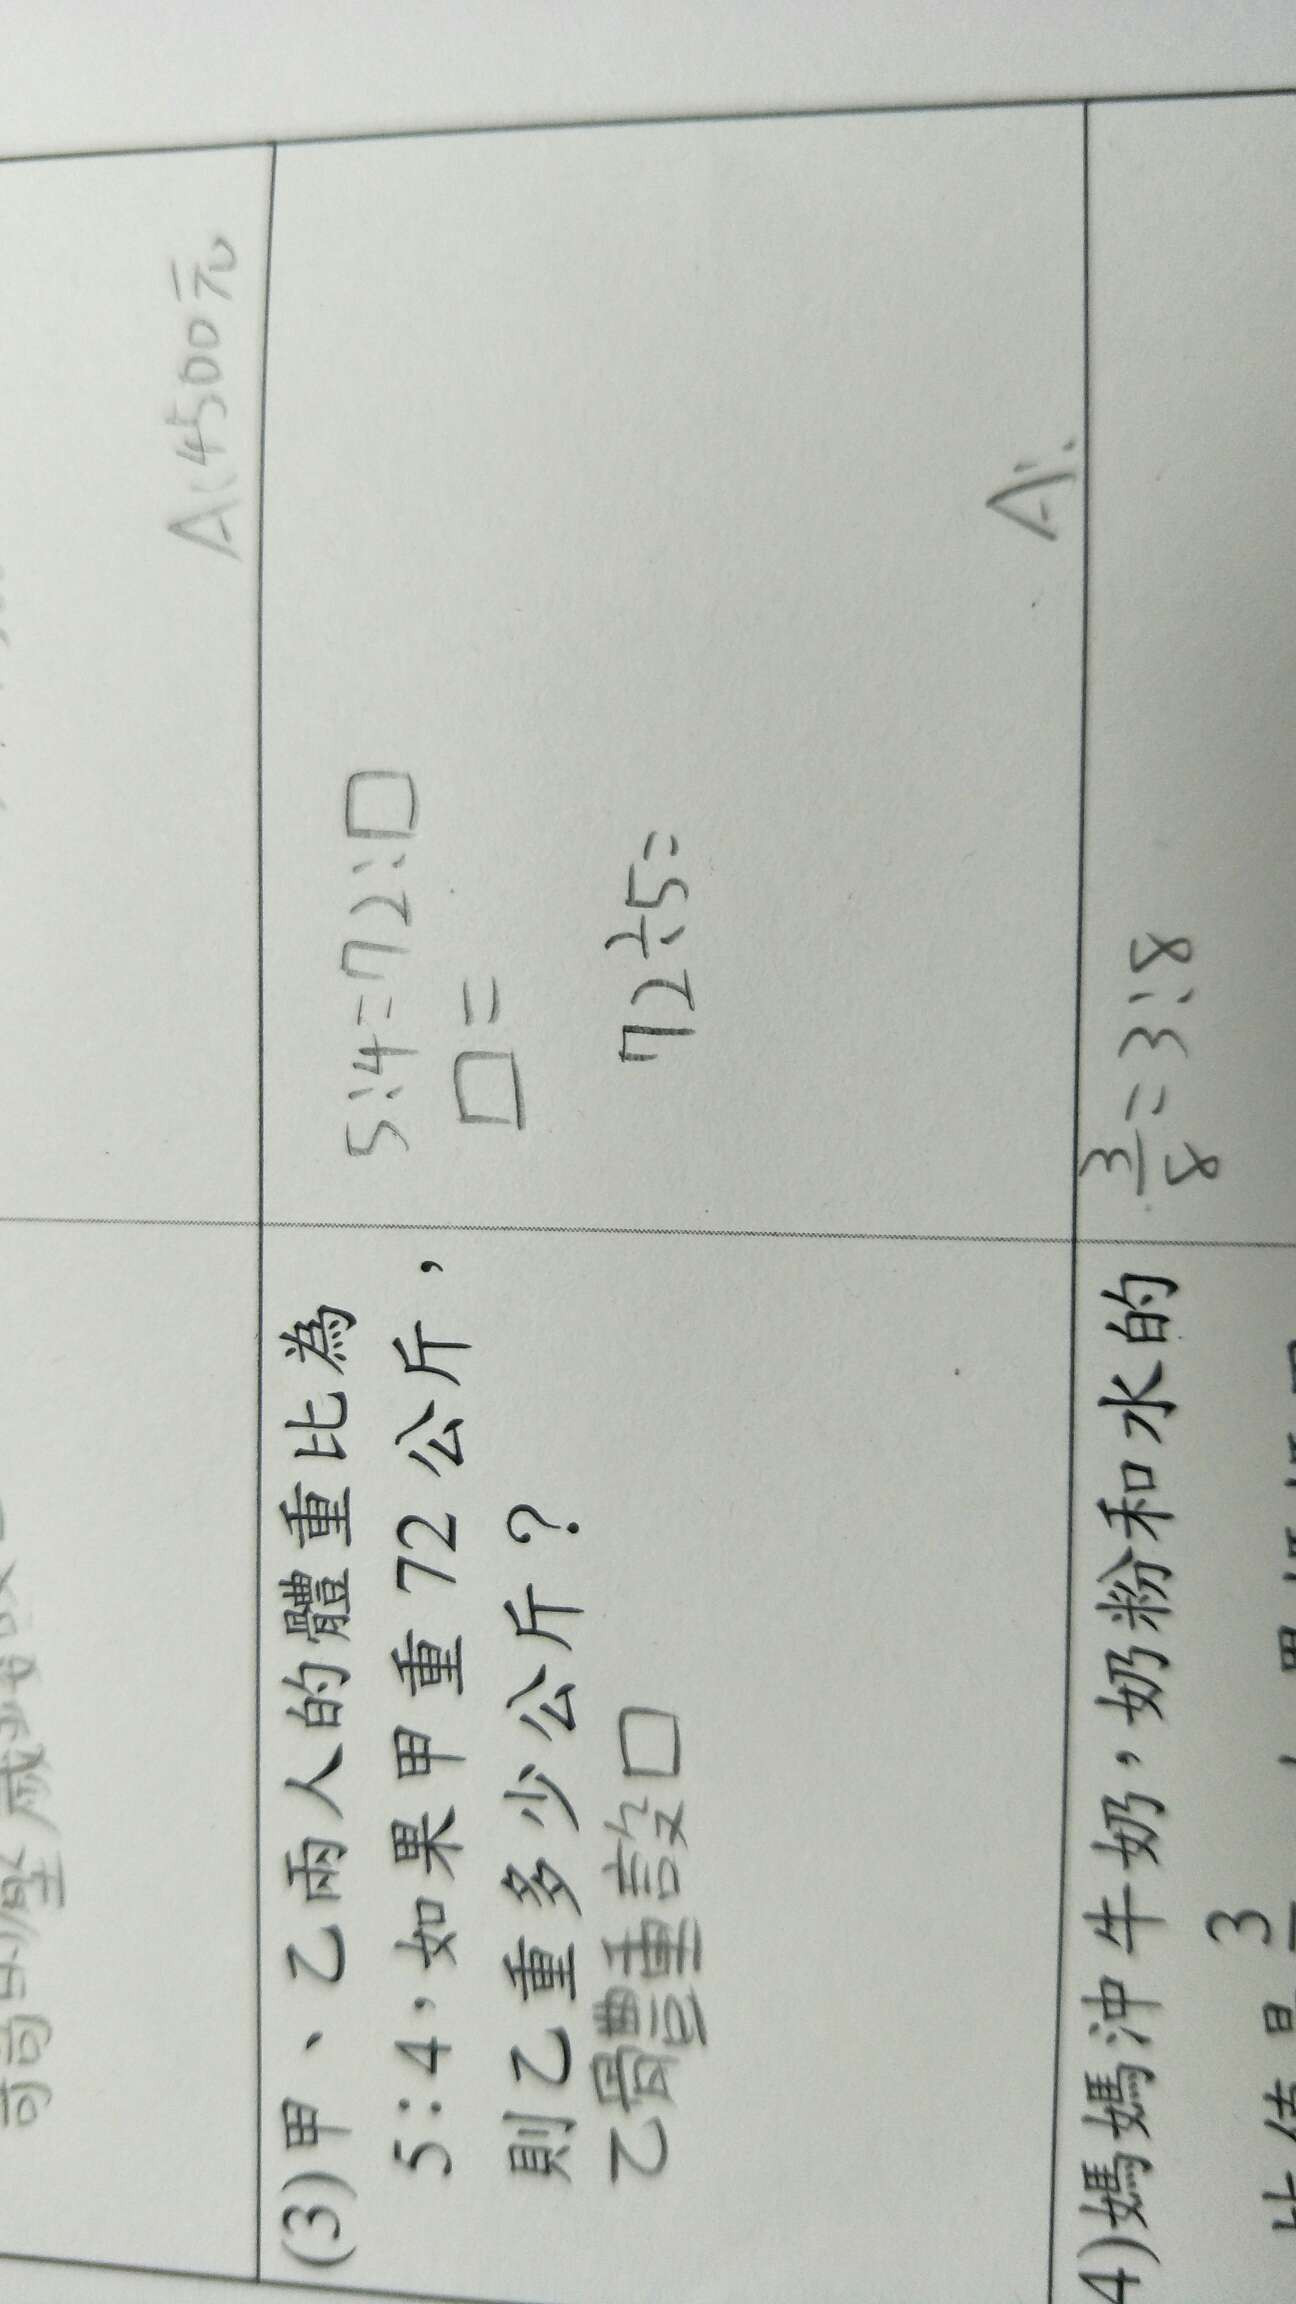 A:4500元
(3)甲、乙兩人的體重比為
5:4，如果甲重 72 公斤，
則乙重多少公斤？
乙體重設□
5:4=72:□
□=
72÷5=
A:
4)媽媽沖牛奶，奶粉和水的
3
3/8=3:8